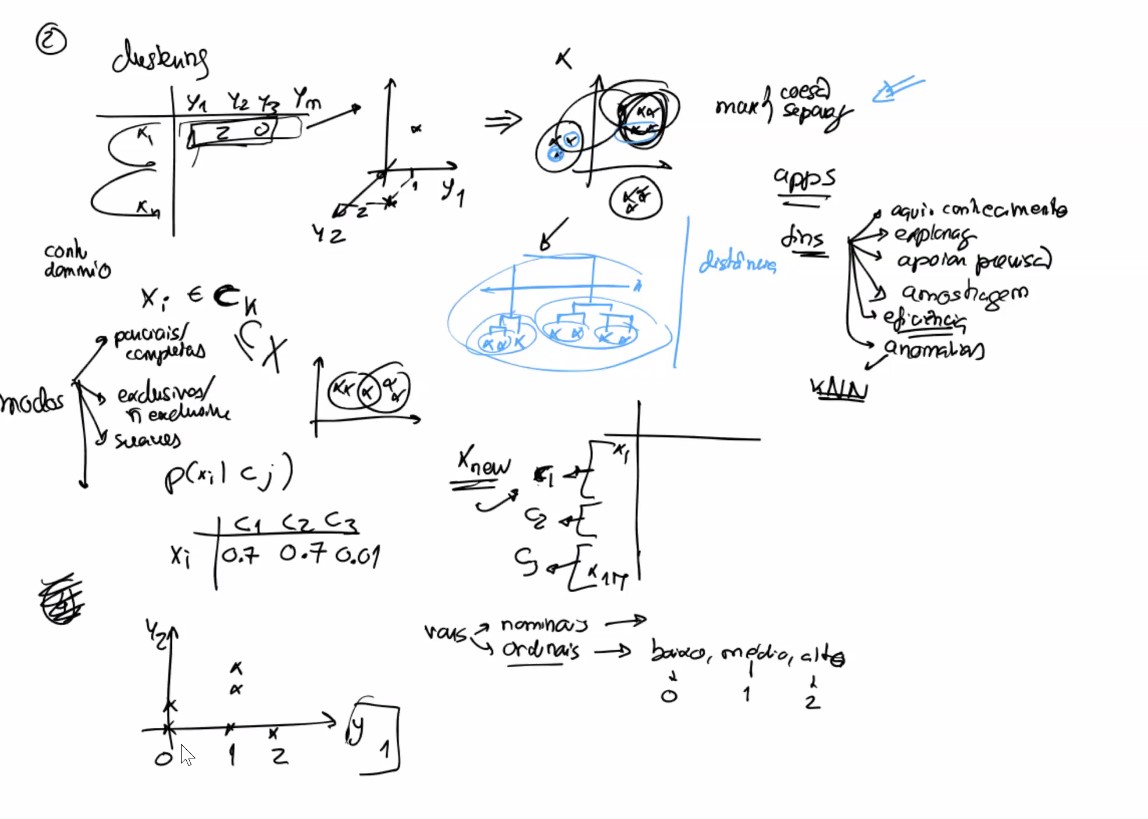 ②
clustering
y1 y2 y3 ym
x1 1 2 0
xn
y1
1
2
y2
max { coesão
separaç
apps
fins
aqui. conhecimento
exploraç
apoiar previsão
amostragem
eficiência
anomalias
KNN
distância
conh.
domínio
xi ∈ Ck
X
modos
parciais/
completas
exclusivos/
ñ exclusivos
suaves
p(xi | cj)
C1 C2 C3
xi 0.7 0.7 0.01
xnew
C1
C2
C3
x1
x1M
vars
nominais
ordinais
baixo, médio, alto
0 1 2
y2
0 1 2
y1